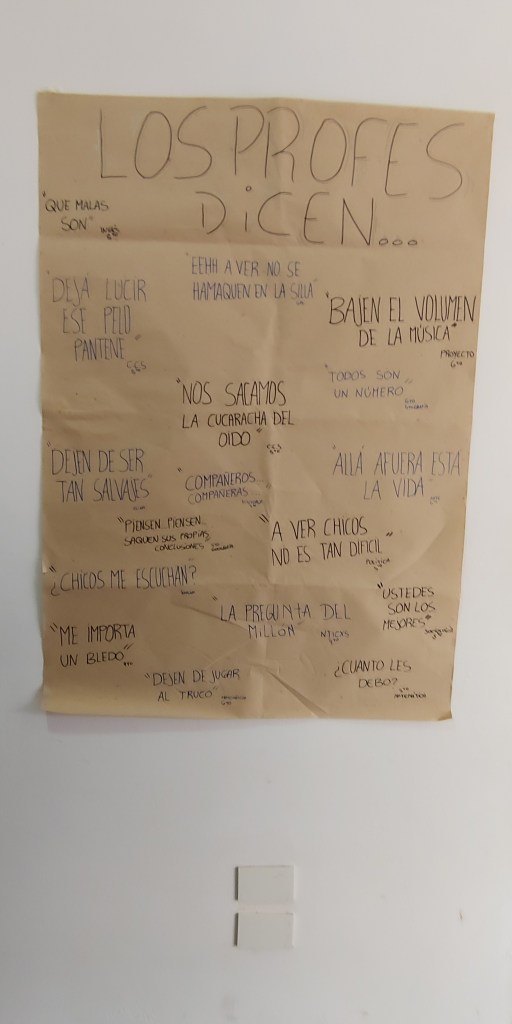 LOS PROFES
DICEN...
"QUE MALAS
SON"
EEHH A VER NO SE
HAMAQUEN EN LA SILLA"
"DEJÁ LUCIR
ESE PELO
PANTENE"
"BAJEN EL VOLUMEN
DE LA MÚSICA"
PROYECTO
6TO
"TODOS SON
UN NÚMERO"
"NOS SACAMOS
LA CUCARACHA DEL
OIDO"
"DEJEN DE SER
TAN SALVAJES"
COMPAÑEROS
COMPAÑERAS
"ALLÁ AFUERA ESTA
LA VIDA"
"PIENSEN PIENSEN
SAQUEN SUS PROPIAS
CONCLUSIONES
"A VER CHICOS
NO ES TAN DIFICIL"
¿CHICOS ME ESCUCHAN?
"USTEDES
SON LOS
MEJORES"
"LA PREGUNTA DEL
MILLÓN"
NTICXS
"ME IMPORTA
UN BLEDO"
"DEJEN DE JUGAR
AL TRUCO"
¿CUANTO LES
DEBO?